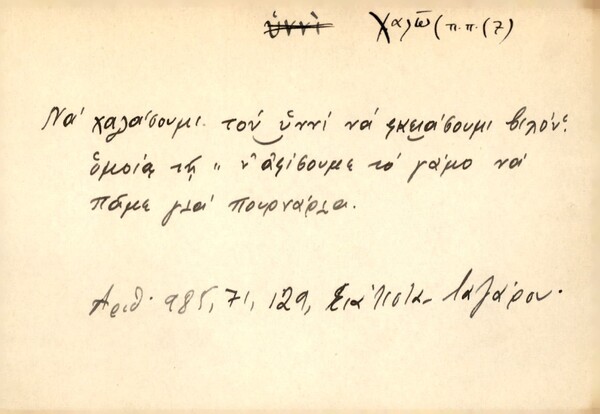 ὑννὶ Χαλῶ (π.π. (7)
Νά χαλάσουμι τοὺ ὑννί νά φκειάσουμι βιλόν'.
ὁμοία τῇ „ ν' ἀφίσουμε τό γάμο νά
πᾶμε γιά πουρνάρια.
Αριθ. 985, 71, 129, Σιάτιστα - Λαζάρου.